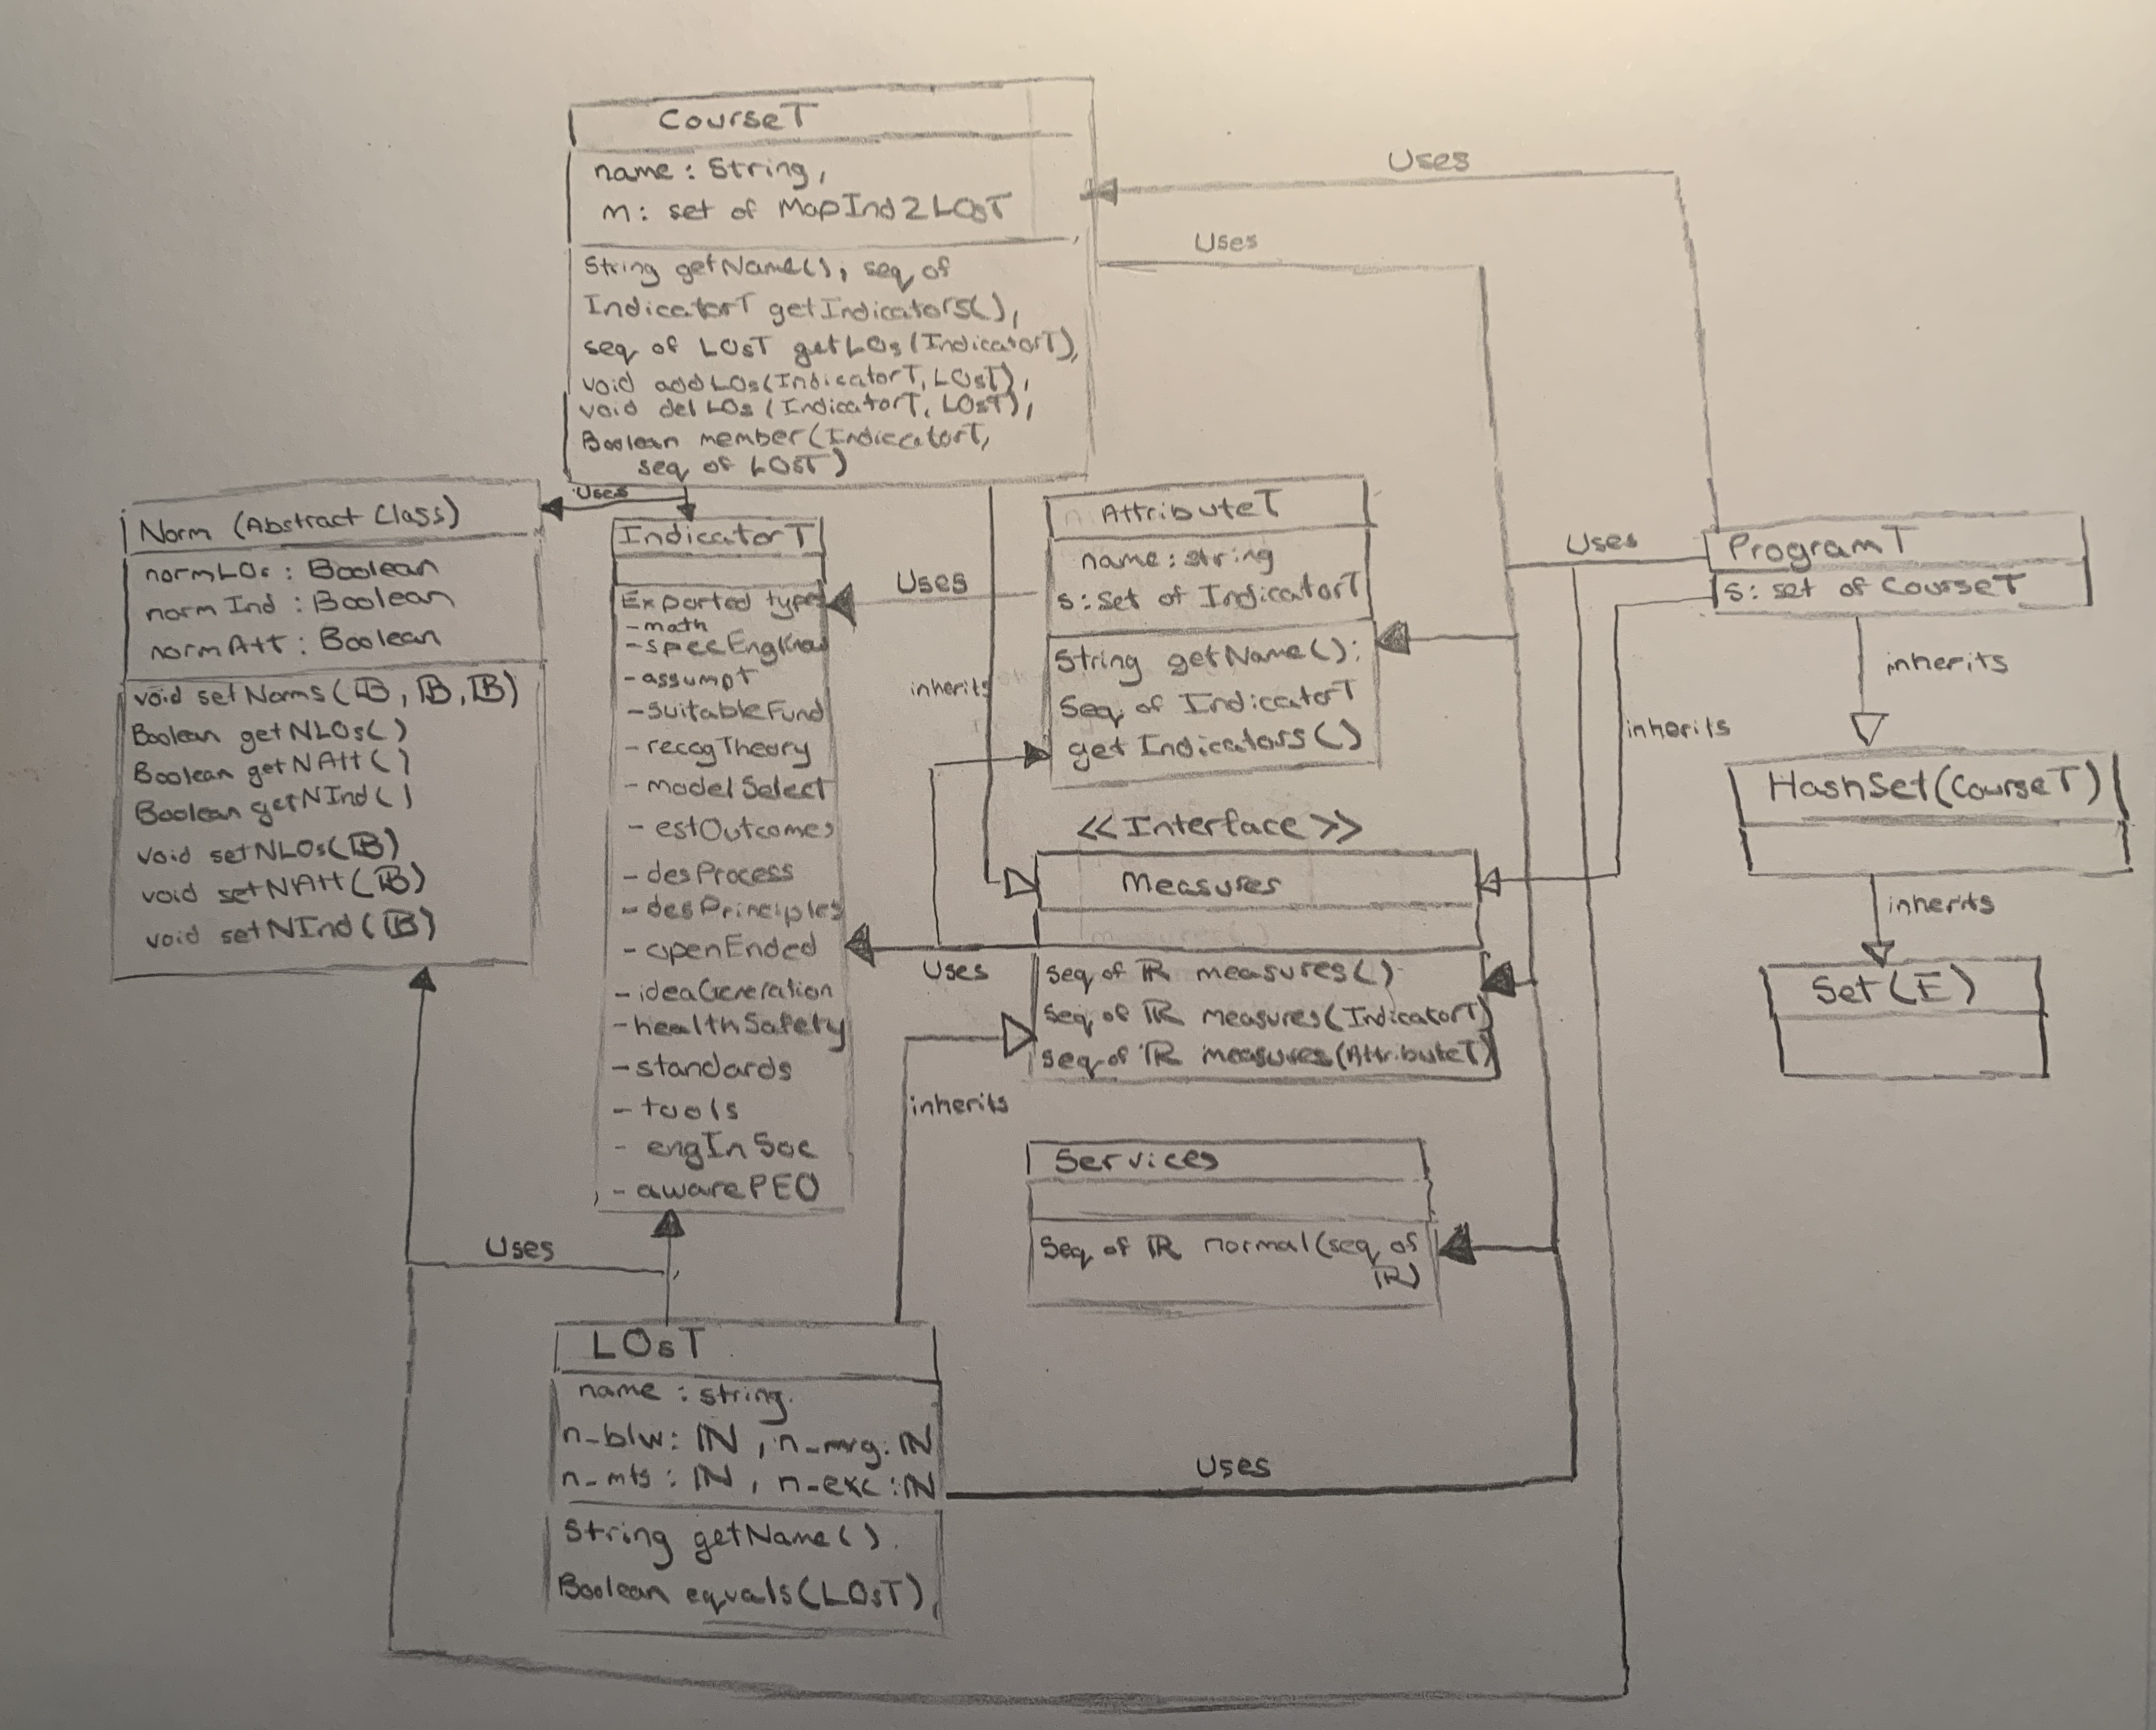 CourseT
name : String,
m : set of MapInd2LOsT
String getName(), seq of
IndicatorT getIndicators(),
seq of LOsT getLOs(IndicatorT),
void addLOs(IndicatorT, LOsT),
void delLOs (IndicatorT, LOsT),
Boolean member(IndicatorT,
seq of LOsT)
Uses
Uses
Uses
Norm (Abstract Class)
normLOs : Boolean
normInd : Boolean
normAtt : Boolean
void setNorms(𝔹, 𝔹, 𝔹)
Boolean getNLOs()
Boolean getNAtt()
Boolean getNInd()
void setNLOs(𝔹)
void setNAtt(𝔹)
void setNInd(𝔹)
IndicatorT
Exported types
-math
-specEngKnow
-assumpt
-suitableFund
-recogTheory
-modelSelect
-estOutcomes
-desProcess
-desPrinciples
-openEnded
-ideaGeneration
-healthSafety
-standards
-tools
- engInSoc
-awarePEO
Uses
inherits
AttributeT
name : string
s : set of IndicatorT
String getName():
Seq of IndicatorT
getIndicators()
Uses
ProgramT
s: set of CourseT
inherits
inherits
HashSet(CourseT)
inherits
Set(E)
<<Interface>>
Measures
seq of ℝ measures()
seq of ℝ measures(IndicatorT)
seq of ℝ measures(AttributeT)
Uses
inherits
Services
Seq of ℝ normal(seq of
ℝ)
Uses
LOsT
name : string.
n_blw: ℕ , n_mrg: ℕ
n_mts : ℕ , n_exc : ℕ
String getName().
Boolean equals(LOsT),
Uses